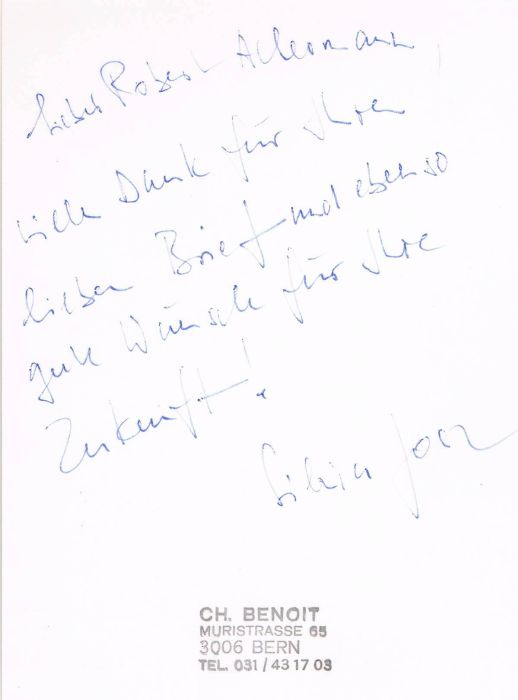 Lieber Robert Ackermann,
vielen Dank für Ihren
lieben Brief und ebenso
gute Wünsche für Ihre
Zukunft!
Silvia Jost
CH. BENOIT
MURISTRASSE 65
3006 BERN
TEL. 031/43 17 03